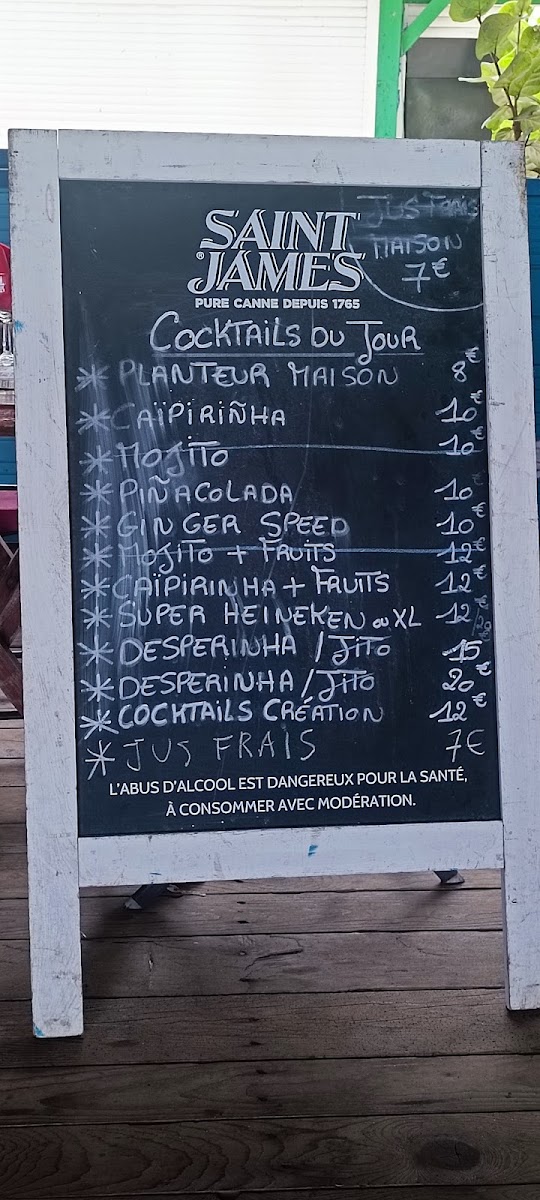 SAINT
JAMES
PURE CANNE DEPUIS 1765
JUS FRAIS
MAISON
7€
COCKTAILS DU JOUR
* PLANTEUR MAISON 8€
* CAÏPIRIÑHA 10€
* MOJITO 10€
* PIÑACOLADA 10€
* GINGER SPEED 10€
* MOJITO + FRUITS 12€
* CAÏPIRINHA + FRUITS 12€
* SUPER HEINEKEN ou XL 12
* DESPERINHA / JITO 15
* DESPERINHA / JITO 20€
* COCKTAILS CRÉATION 12€
* JUS FRAIS 7€
L'ABUS D'ALCOOL EST DANGEREUX POUR LA SANTÉ,
À CONSOMMER AVEC MODÉRATION.